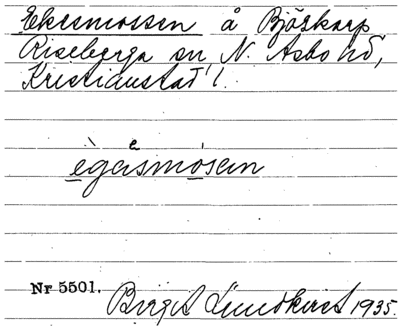 Ekesmossen å Björkarp
Riseberga sn, N. Åsbo hd,
Kristianstad l.
ègåsmósen
Nr 5501. Birgit Lundkvist 1935.